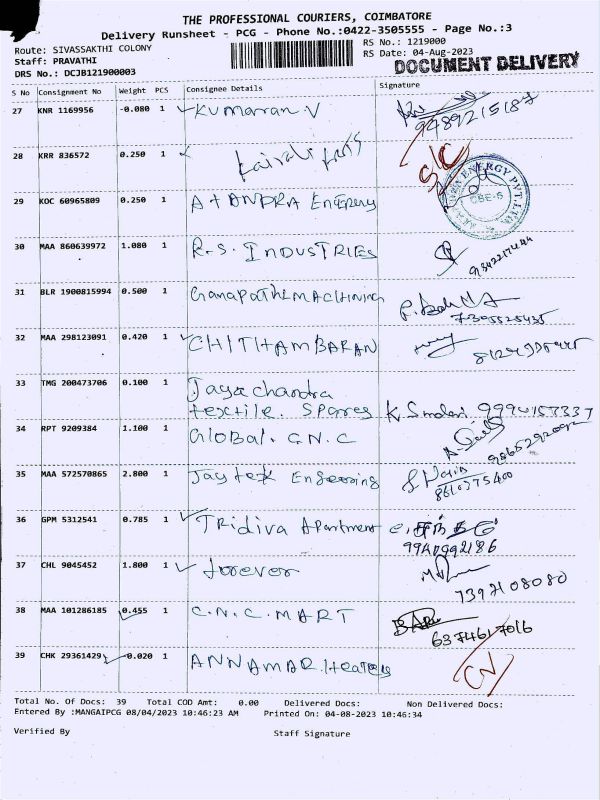 THE PROFESSIONAL COURIERS, COIMBATORE
Delivery Runsheet - PCG - Phone No.:0422-3505555 - Page No.:3
Route: SIVASSAKTHI COLONY
RS No.: 1219000
Staff: PRAVATHI
RS Date: 04-Aug-2023
DRS No.: DCJB121900003
DOCUMENT DELIVERY
S No Consignment No Weight PCS Consignee Details Signature
27 KNR 1169956 -0.080 1 Kumarran.V
28 KRR 836572 0.250 1
29 KOC 60965809 0.250 1 A+ANDRA
ENERGY PVT. LTD
CBE-6
30 MAA 860639972 1.080 1 R.S. INDUSTRIES
31 BLR 1900815994 0.500 1 GanapathimaChining
7305525435
32 MAA 298123091 0.420 1 CHITHAMBARAN
33 TMG 200473706 0.100 1 Jayachandra
textile. Spares
34 RPT 9209384 1.100 1 Global. C.N.C
35 MAA 572570865 2.800 1 Jaytek
8610375400
36 GPM 5312541 0.785 1 Tridiva Apartment
37 CHL 9045452 1.800 1 forever
38 MAA 101286185 0.455 1 C.N.C. MART
6374617016
39 CHK 29361429 -0.020 1 ANNAMAR. Heaters
Total No. Of Docs: 39 Total COD Amt: 0.00 Delivered Docs: Non Delivered Docs:
Entered By :MANGAIPCG 08/04/2023 10:46:23 AM Printed On: 04-08-2023 10:46:34
Verified By Staff Signature